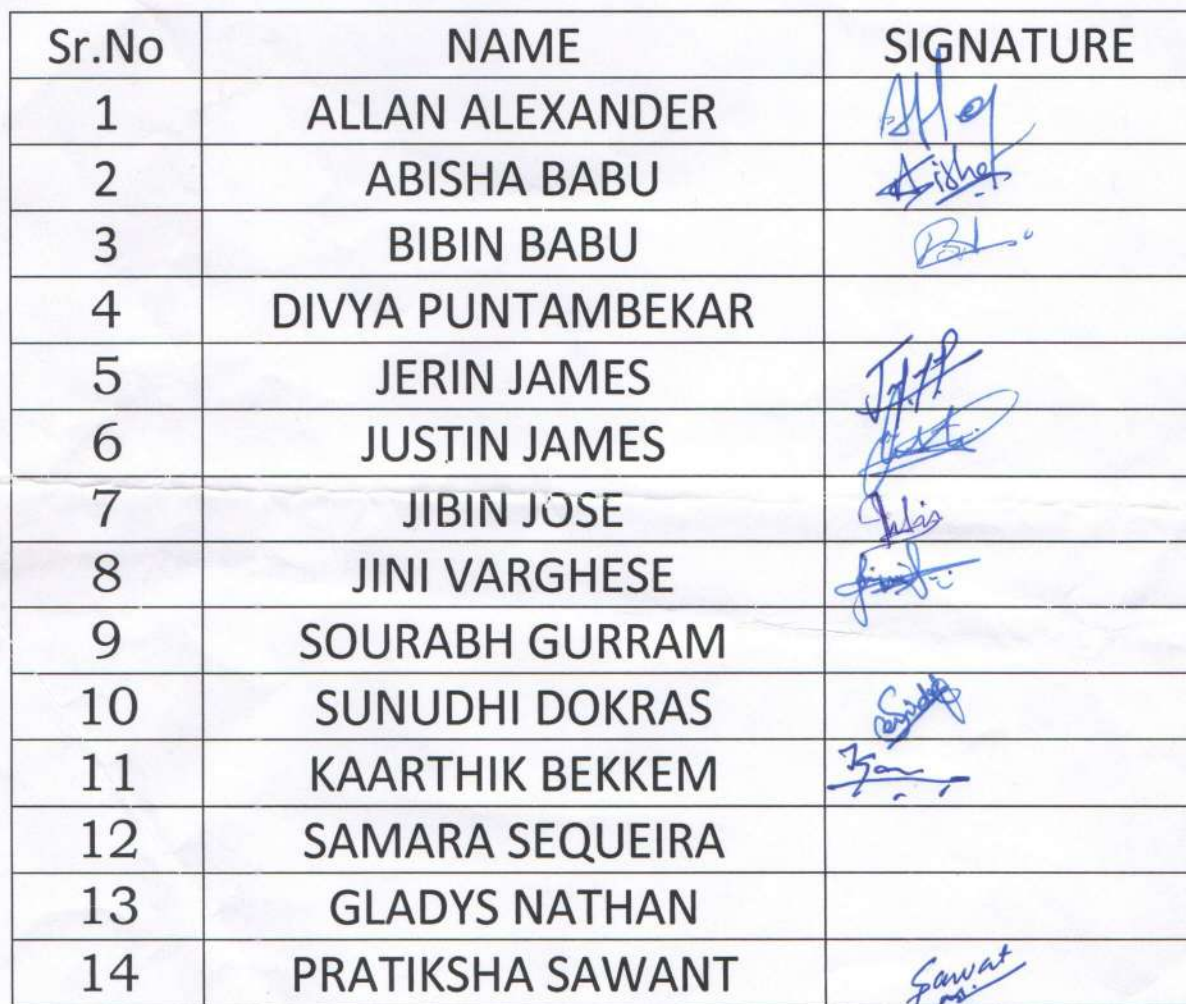 Sr.No NAME SIGNATURE
1 ALLAN ALEXANDER
2 ABISHA BABU
3 BIBIN BABU
4 DIVYA PUNTAMBEKAR
5 JERIN JAMES
6 JUSTIN JAMES
7 JIBIN JOSE
8 JINI VARGHESE
9 SOURABH GURRAM
10 SUNUDHI DOKRAS
11 KAARTHIK BEKKEM
12 SAMARA SEQUEIRA
13 GLADYS NATHAN
14 PRATIKSHA SAWANT Sawant